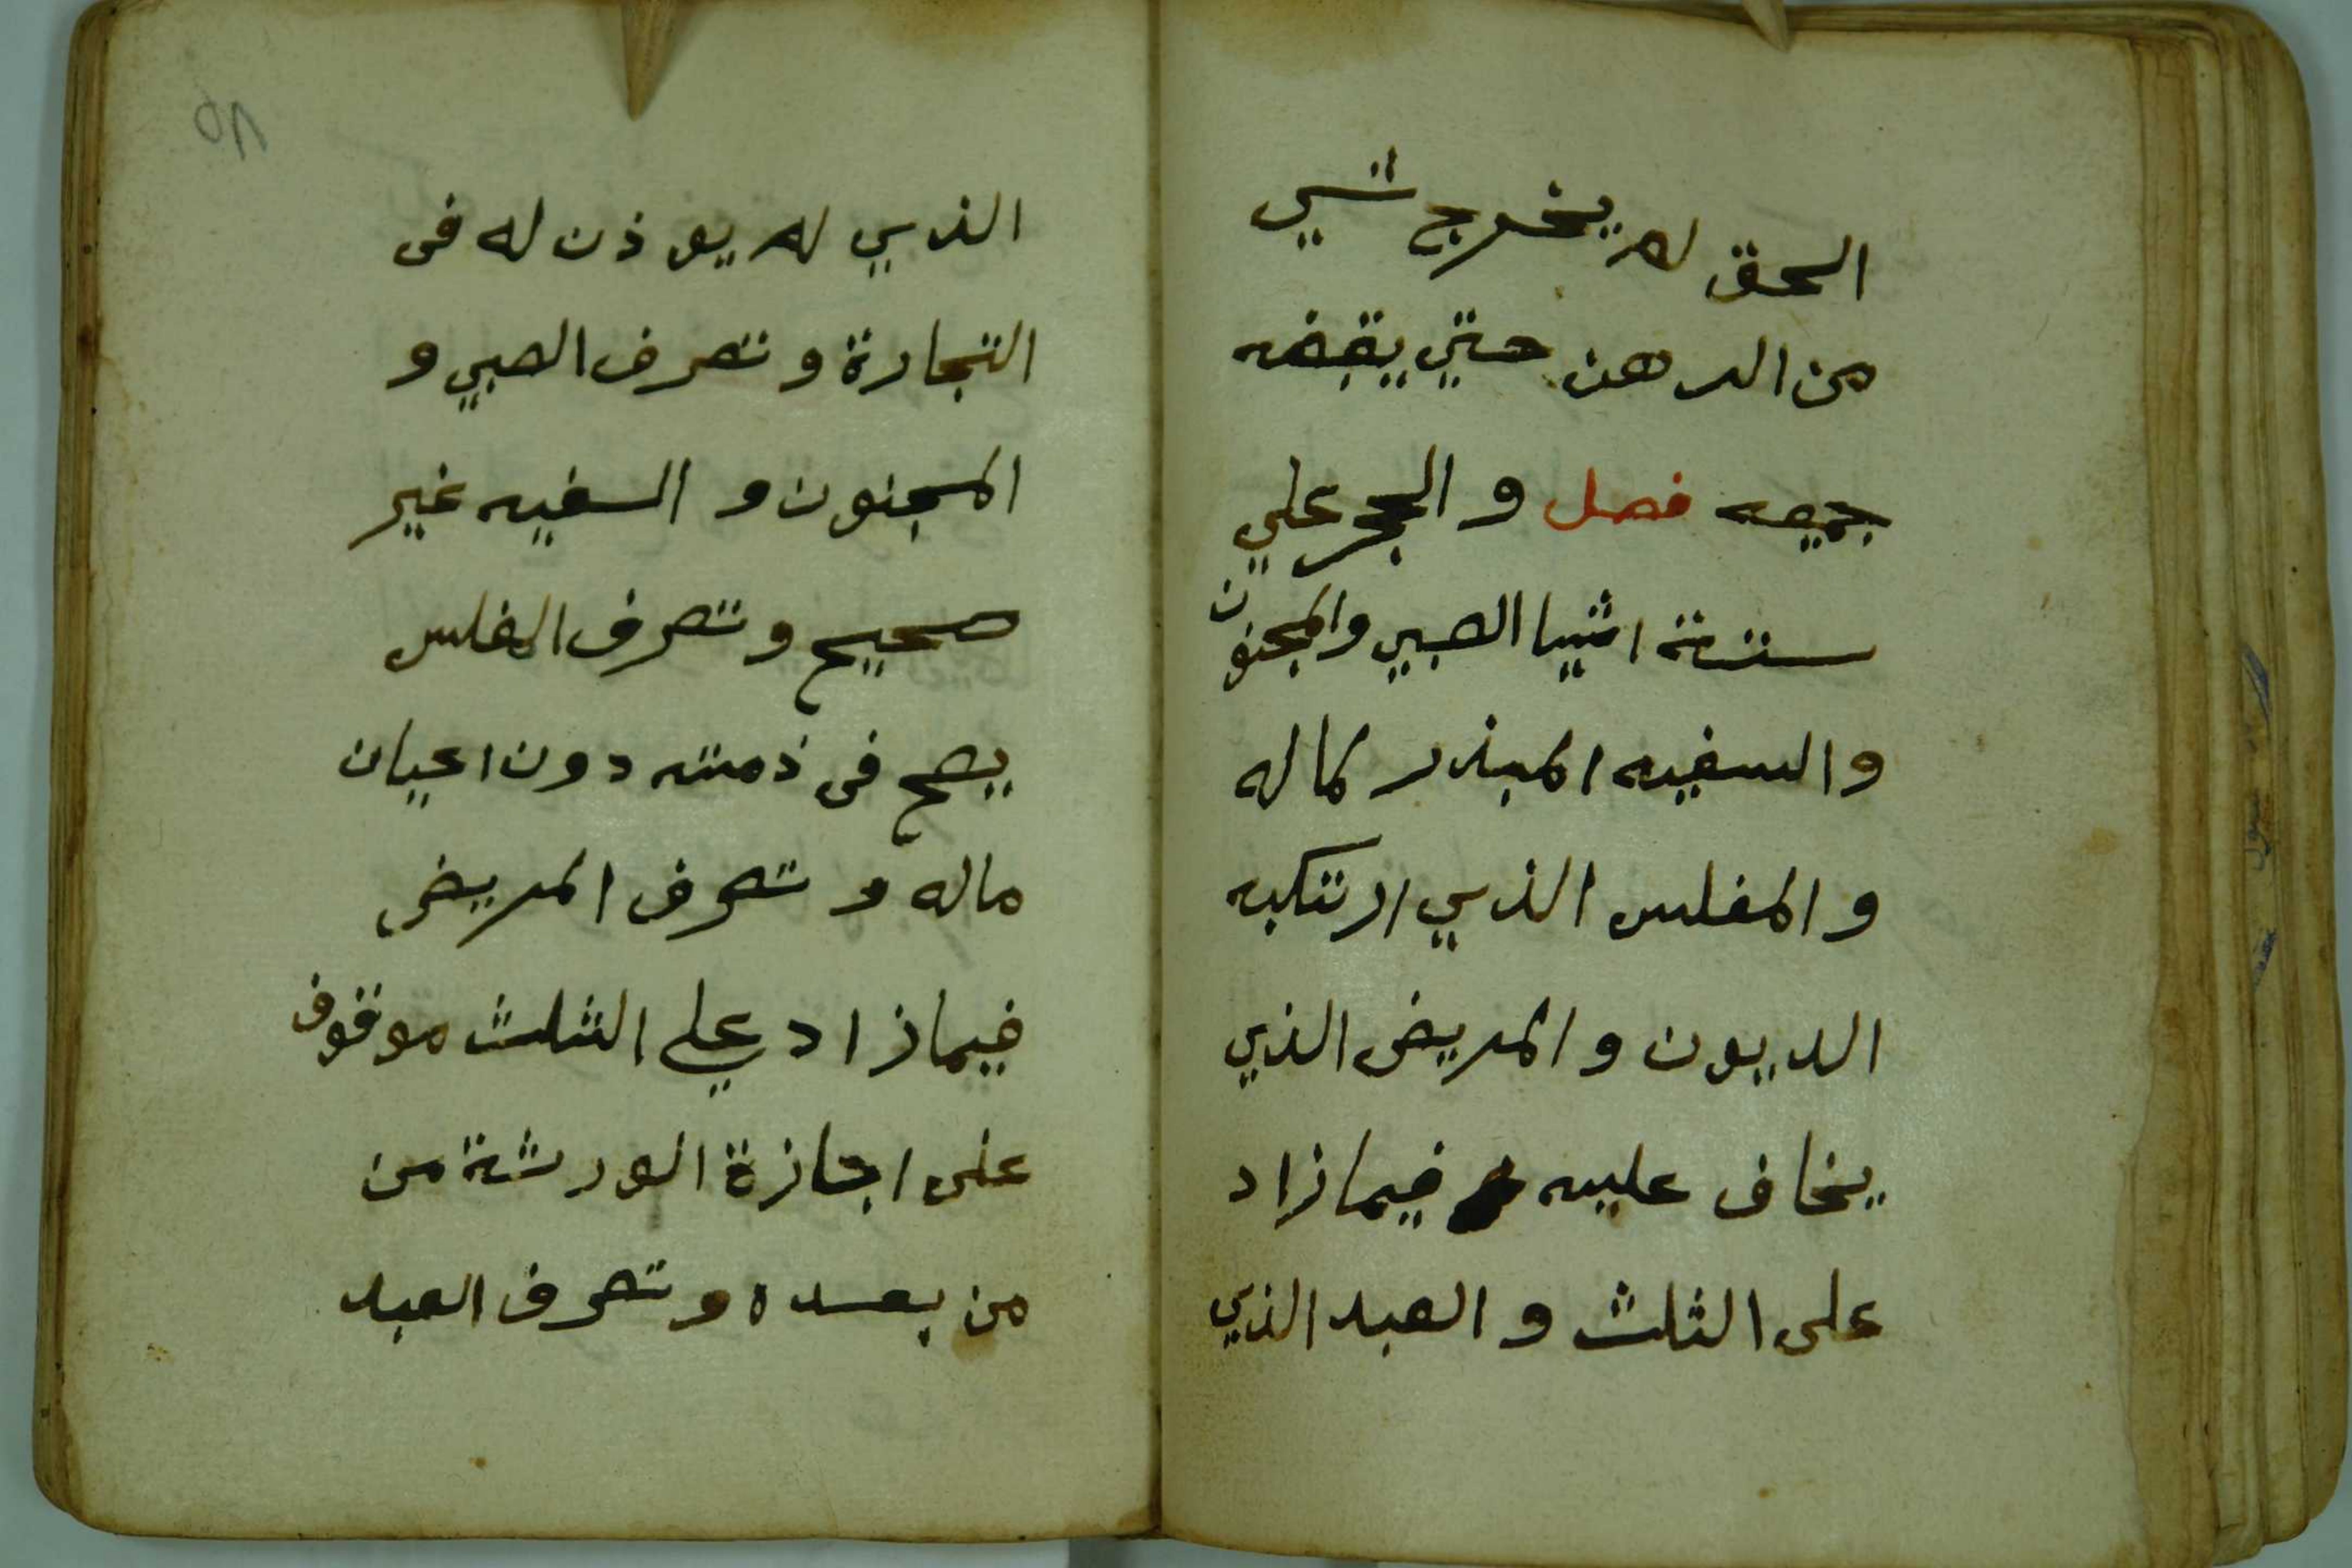 الحق لم يخرج شي
من الرهن حتي يقبضه
جميعه فصل و الحجر علي
ستة اشيا الصبي والمجنون
والسفيه المبذر لماله
و المفلس الذي ارتكبه
الديون و المريض الذي
يخاف عليه فيما زاد
على الثلث و العبد الذي
الذي لم يوذن له فى
التجارة و تصرف الصبي و
المجنون و السفيه غير
صحيح و تصرف المفلس
يصح فى ذمته دون اعيان
ماله و تصرف المريض
فيما زاد علي الثلث موقوف
على اجازة الورثة من
من بعده و تصرف العبد